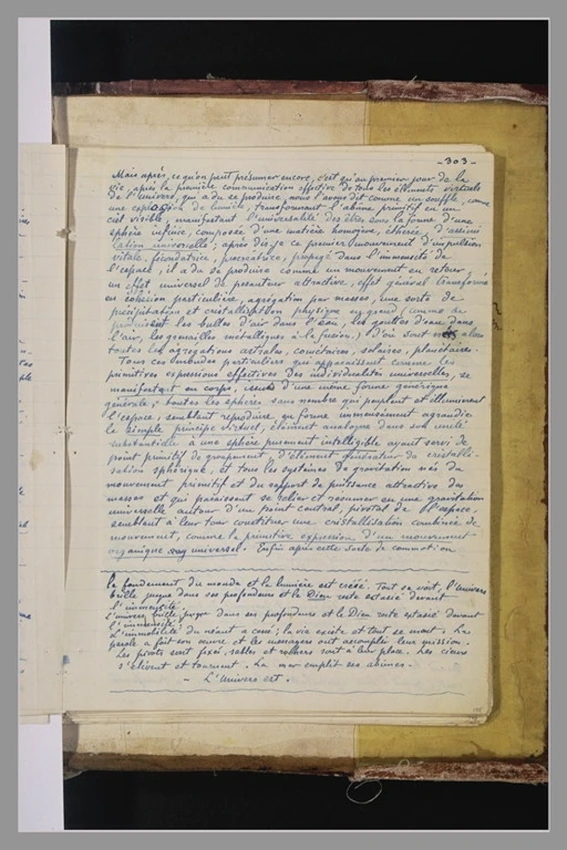 - 303 -
Mais après, ce qu'on peut présumer encore, c'est qu'au premier jour de la
vie, après la première communication effective de tous les éléments virtuels
de l'univers, qui a du se produire, nous l'avons dit comme un souffle, comme
une explosion de lumière, transformant l'abime primitif en un
ciel visible, manifestant l'universalité des êtres sous la forme d'une
sphère infinie, composée d'une matière homogène, éthérée, d'assimi
lation universelle ; après dis-je ce premier mouvement d'impulsion
vitale, fécondatrice, procréatrice, propagé dans l'immensité de
l'espace, il a du se produire comme un mouvement en retour,
un effet universel de pesanteur attractive, effet général transformé
en cohésion particulière, agrégation par masses, une sorte de
précipitation et cristallisation physique en grand (comme se
produisent les bulles d'air dans l'eau, les gouttes d'eau dans
l'air, les grenailles métalliques à la fusion.) d'où sont nées alors
toutes les agrégations astrales, cométaires, solaires, planétaires.
Tous ces corpuscules particuliers qui apparaissent comme les
primitives expressions effectives des individualités universelles, se
manifestant en corps, d'une même forme générique
générale, toutes les sphères sans nombre qui peuplent et illuminent
l'espace, semblant reproduire en forme immensément agrandie
le simple principe virtuel, élément analogue dans son unité
substantielle à une sphère purement intelligible ayant servi de
point primitif de groupement, d'élément générateur de cristalli-
sation sphérique, et tous les systèmes de gravitation nés du
mouvement primitif et du rapport de puissance attractive des
masses et qui paraissent se relier et résumer en une gravitation
universelle autour d'un point central, pivotal de l'espace,
semblant à leur tour constituer une cristallisation combinée de
mouvement, comme la primitive expression d'un mouvement
organique universel. Enfin après cette sorte de commotion
le fondement du monde et la lumière est créée. Tout se voit, l'Univers
brille jusque dans ses profondeurs et le Dieu reste extasié devant
l'immensité.
L'univers brille jusque dans ses profondeurs et le Dieu reste extasié devant
l'immensité.
L'immobilité du néant a cessé ; la vie existe et tout se meut. La
parole a fait son œuvre et les messagers ont accompli leur mission.
Les pivots sont fixés, sables et rochers sont à leur place. Les cieux
s'élèvent et tournent. La mer emplit ses abimes.
- L'Univers est.